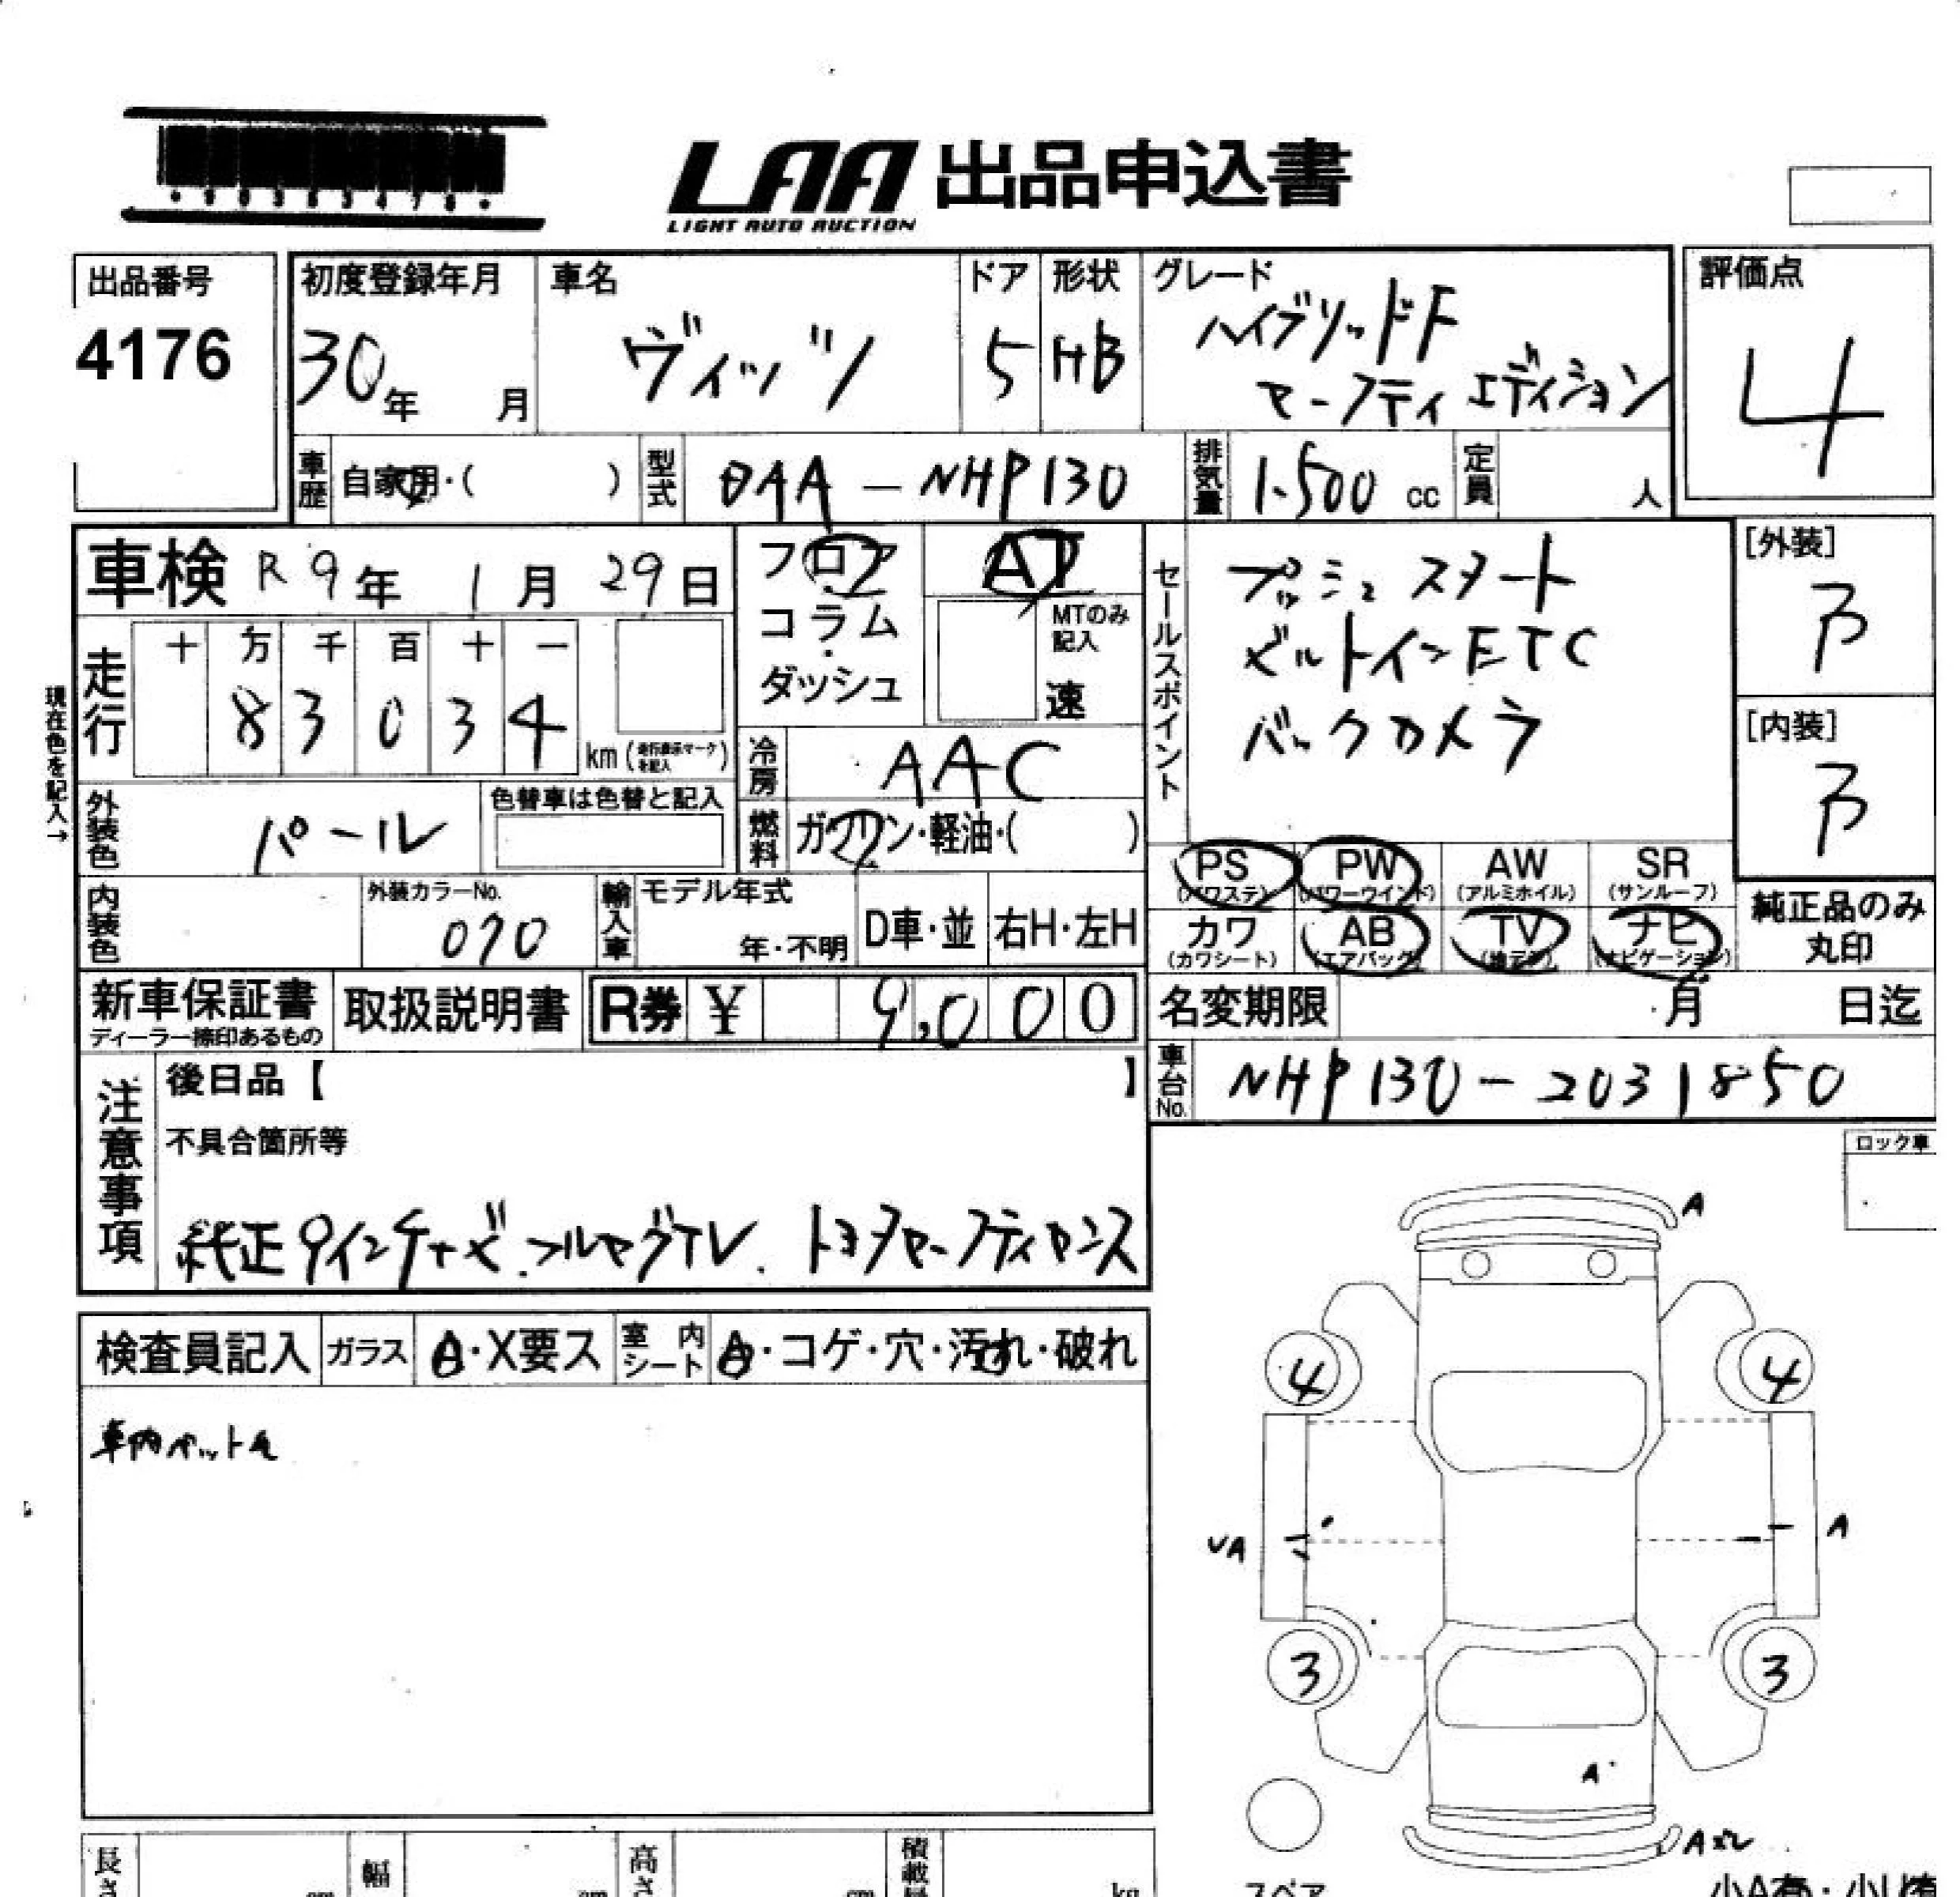 LAA 出品申込書
LIGHT AUTO AUCTION
出品番号
4176
初度登録年月
30年 月
車名
ヴィッツ
ドア
5
形状
HB
グレード
ハイブリッドF
セーフティ エディション
評価点
4
車歴
自家用・( )
型式
DAA-NHP130
排気量
1.500 cc
定員
人
車検 R 9年 1月 29日
フロア
コラム・
ダッシュ
AT
MTのみ
記入
速
セールスポイント
プッシュスタート
ビルトインETC
バックカメラ
[外装]
B
[内装]
B
現在色を記入→
走行
十 万 千 百 十 一
8 3 0 3 4
km (走行表示マークを記入)
冷房
AAC
外装色
パール
色替車は色替と記入
燃料
ガソリン・軽油・( )
PS
(パワステ)
PW
(パワーウインド)
AW
(アルミホイル)
SR
(サンルーフ)
カワ
(カワシート)
AB
(エアバッグ)
TV
(地デジ)
ナビ
(ナビゲーション)
純正品のみ
丸印
内装色
外装カラーNo.
070
輸入車
モデル年式
年・不明
D車・並
右H・左H
新車保証書
ディーラー捺印あるもの
取扱説明書
R券 ¥ 9,000
名変期限
月 日迄
車台No.
NHP130-2031850
注意事項
後日品【 】
不具合箇所等
純正9インチナビ.フルセグTV. トヨタセーフティセンス
ロック車
A
検査員記入
ガラス
A・X要ス
室内シート
A・コゲ・穴・汚れ・破れ
車内ペット毛
4
4
UA
A
3
3
A
スペア
長さ
cm
幅
cm
高さ
cm
積載
kg
小A有・小U有